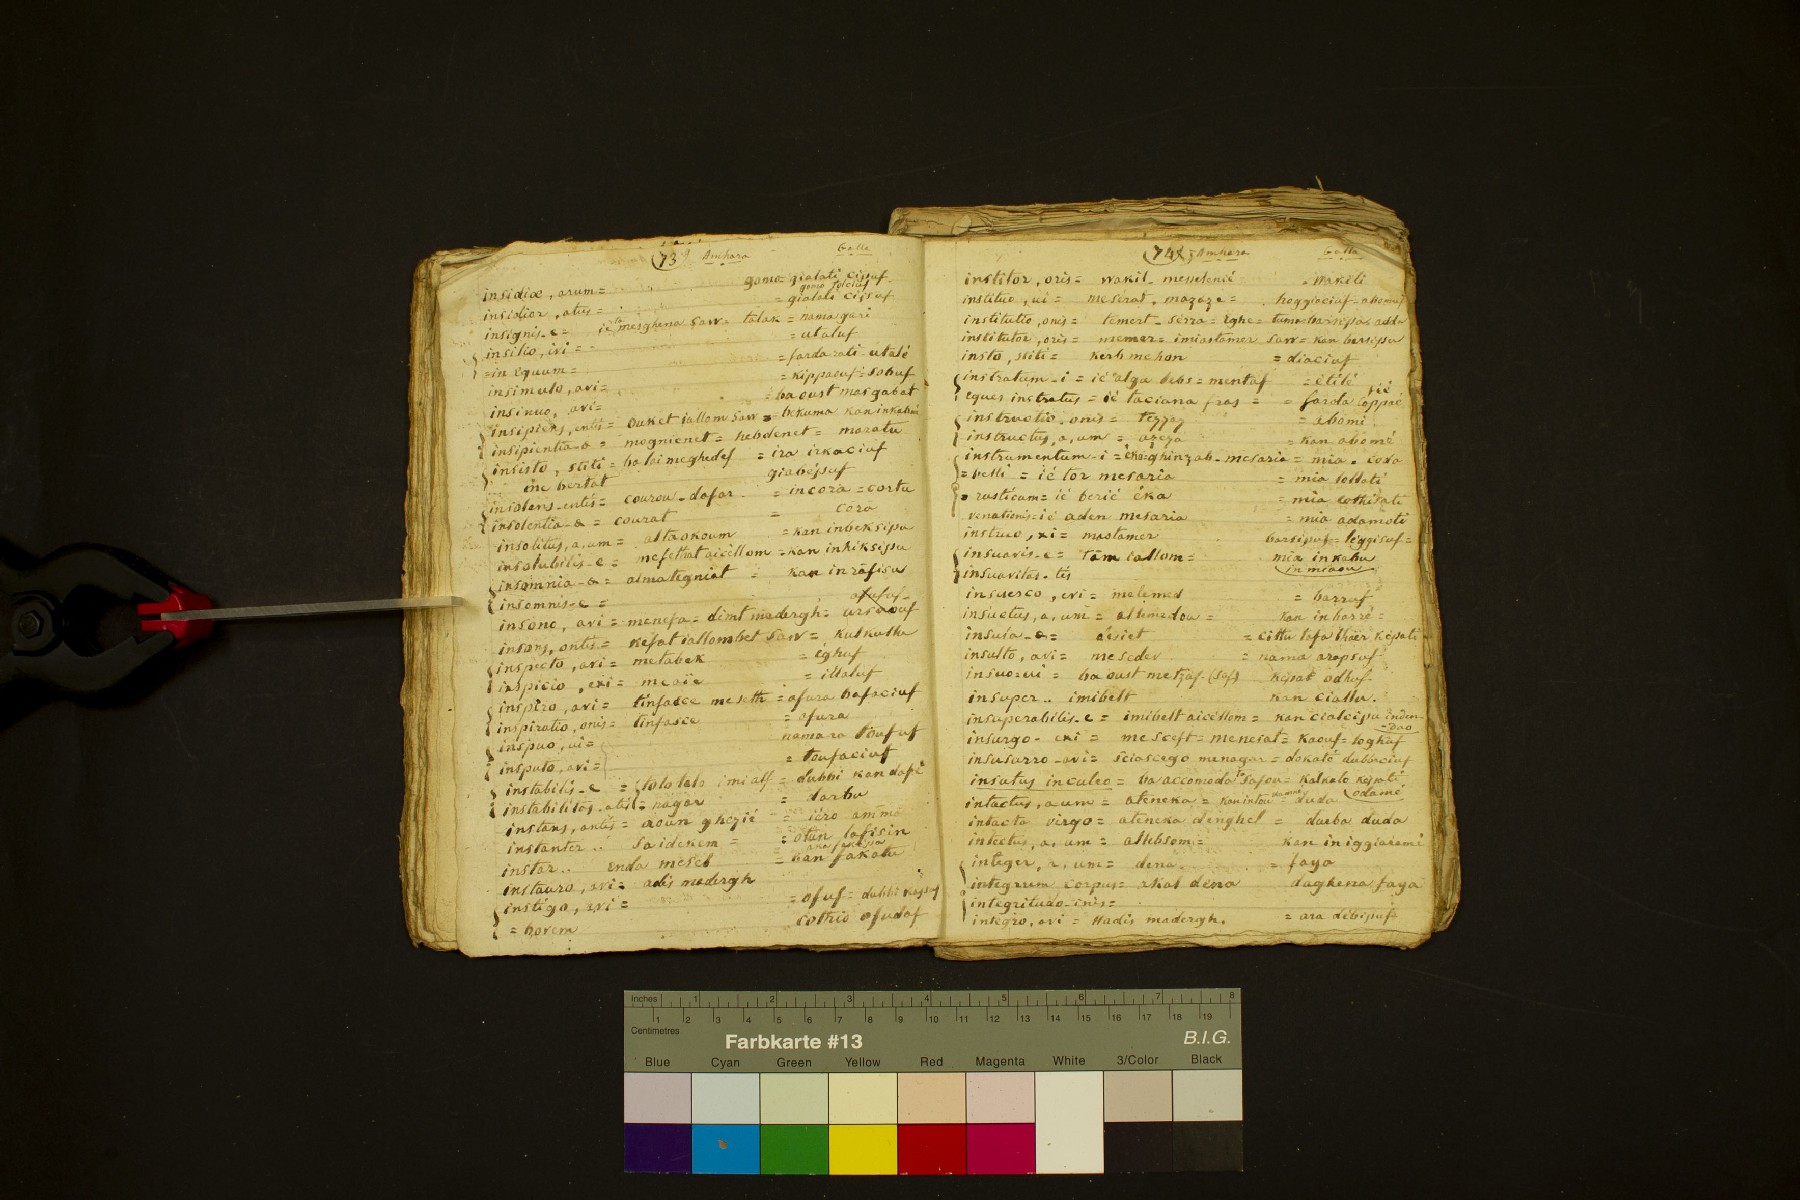 73 Amhara Galla
insidiæ, arum = gomo = gialati cissuf
insidior, atus = = gialati cissuf
insignis-e = ié mesghana saw = talak = nama gari
insilio, ivi = = utaluf
= in equum = = farda rati utalé
insimulo, avi = = kippaeuf = sobuf
insinuo, avi = = ba oust mas gabat
insipiens, entis = ouket iallom saw = bekuma kan inkabni
insipientia-æ = mognienet = hebdenet = maratu
insisto, stiti = ba lai meghedef = ira irkaciuf
inc bertat giabéssuf
insolens-entis = courou-dafar = in cora = cortu
insolentia-æ = courat = cora
insolitus, a, um = altaokoum = kan inbeksisu
insolubilis-e = mefethat aicellom = kan inhiksisu
insomnia-æ = alma tegniat = kan in rafisu
insomnis-e =
insono, avi = menefa = dimt madergh = ursaouf
insons, ontis = kefat iallombet saw = kulkullu
inspecto, avi = metabek = eghuf
inspicio, exi = meaïe = illaluf
inspiro, avi = tinfasce meseth = afura bafaciuf
inspiratio, onis = tinfasce = afura
inspuo, ui = namara toufuf
insputo, avi = = toufaciuf
instabilis-e = tolo tolo imi alf = dubbi kan dafé
instabilitas, atis = nagar = darbu
instans, antis = aoun ghezié = iéro ammo
instanter .. sa idekem = = otun lafisin
instar .. enda mesel = han fakatu
instauro, avi = adis madergh
instigo, avi = = afuf = dubbi
= bovem cothio afudaf
74 Amhara Galla
institor, oris = wakil = messelenié wakili
instituo, ui = meserat, mazaze = hoggiaciuf = abomuf
institutio, onis = temert = serra = eghe = tuma = barsisa = adda
institutor, oris = memer = imiastamer saw = kan barsisu
insto, stiti = kerb mehon = diaciuf
instratum-i = ié alga lebs = mentaf = étilé
eques instratus = ié laciana fras = = farda coppaé
instructio-onis = tezzaz = abomi
instructus, a, um = azeza = kan abomé
instrumentum-i = éka = ghinzab = mesaria = mia = coda
= belli = ié tor mesaria = mia lollati
= rusticum = ié berié éka = mia cothisati
venationis = ié aden mesaria = mia adamoti
instruo, xi = mastamer barsisuf = léggisuf =
insuavis-e = tam iallom = mia in kabu
insuavitas-tis in miaou
insuesco, evi = melemed = barruf
insuetus, a, um = allemedou = kan inbarré =
insula-æ = désiet = cittu lafa
insulto, avi = mesedev = nama arapsuf
insuo = ui = ba oust metzaf (saf) késat odhuf
insuper .. imibelt kan ciallu.
insuperabilis-e = imibelt aicellom = kan cialcisu inden-
= dao
insurgo - exi = mesceft = menesat = kaouf = loghaf
insusurro-avi = sciascego menagar = dokaté dubbaciuf
insutus in culeo = ba accomoda safou = kalkalo késati
odamé
intactus, a um = ateneka = kanintou duda
intacta virgo = ateneka denghel = duba duda
intectus, a, um = allebsom = kan in iggiarami
integer, a, um = dena. = faya
integrum corpus = akal dena daghena faya
integrituao-inis =
integro, avi = Hadis madergh. = ara débisuf
Inches 1 2 3 4 5 6 7 8
1 2 3 4 5 6 7 8 9 10 11 12 13 14 15 16 17 18 19
Centimetres
Farbkarte #13 B.I.G.
Blue Cyan Green Yellow Red Magenta White 3/Color Black